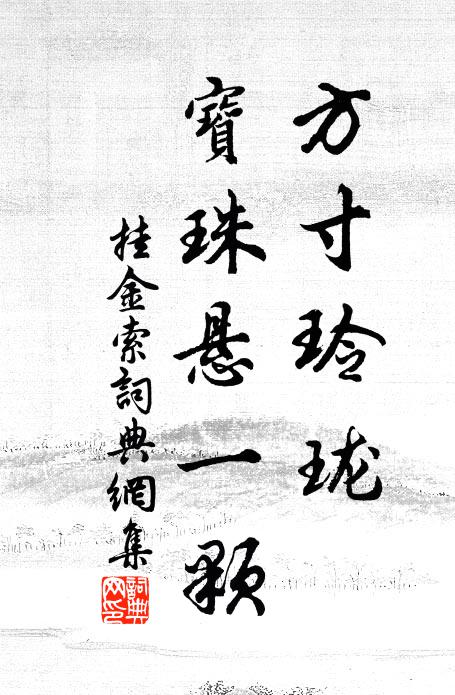 方寸玲珑
寶珠悬一顆
挂金索詞典網集
詞典网印